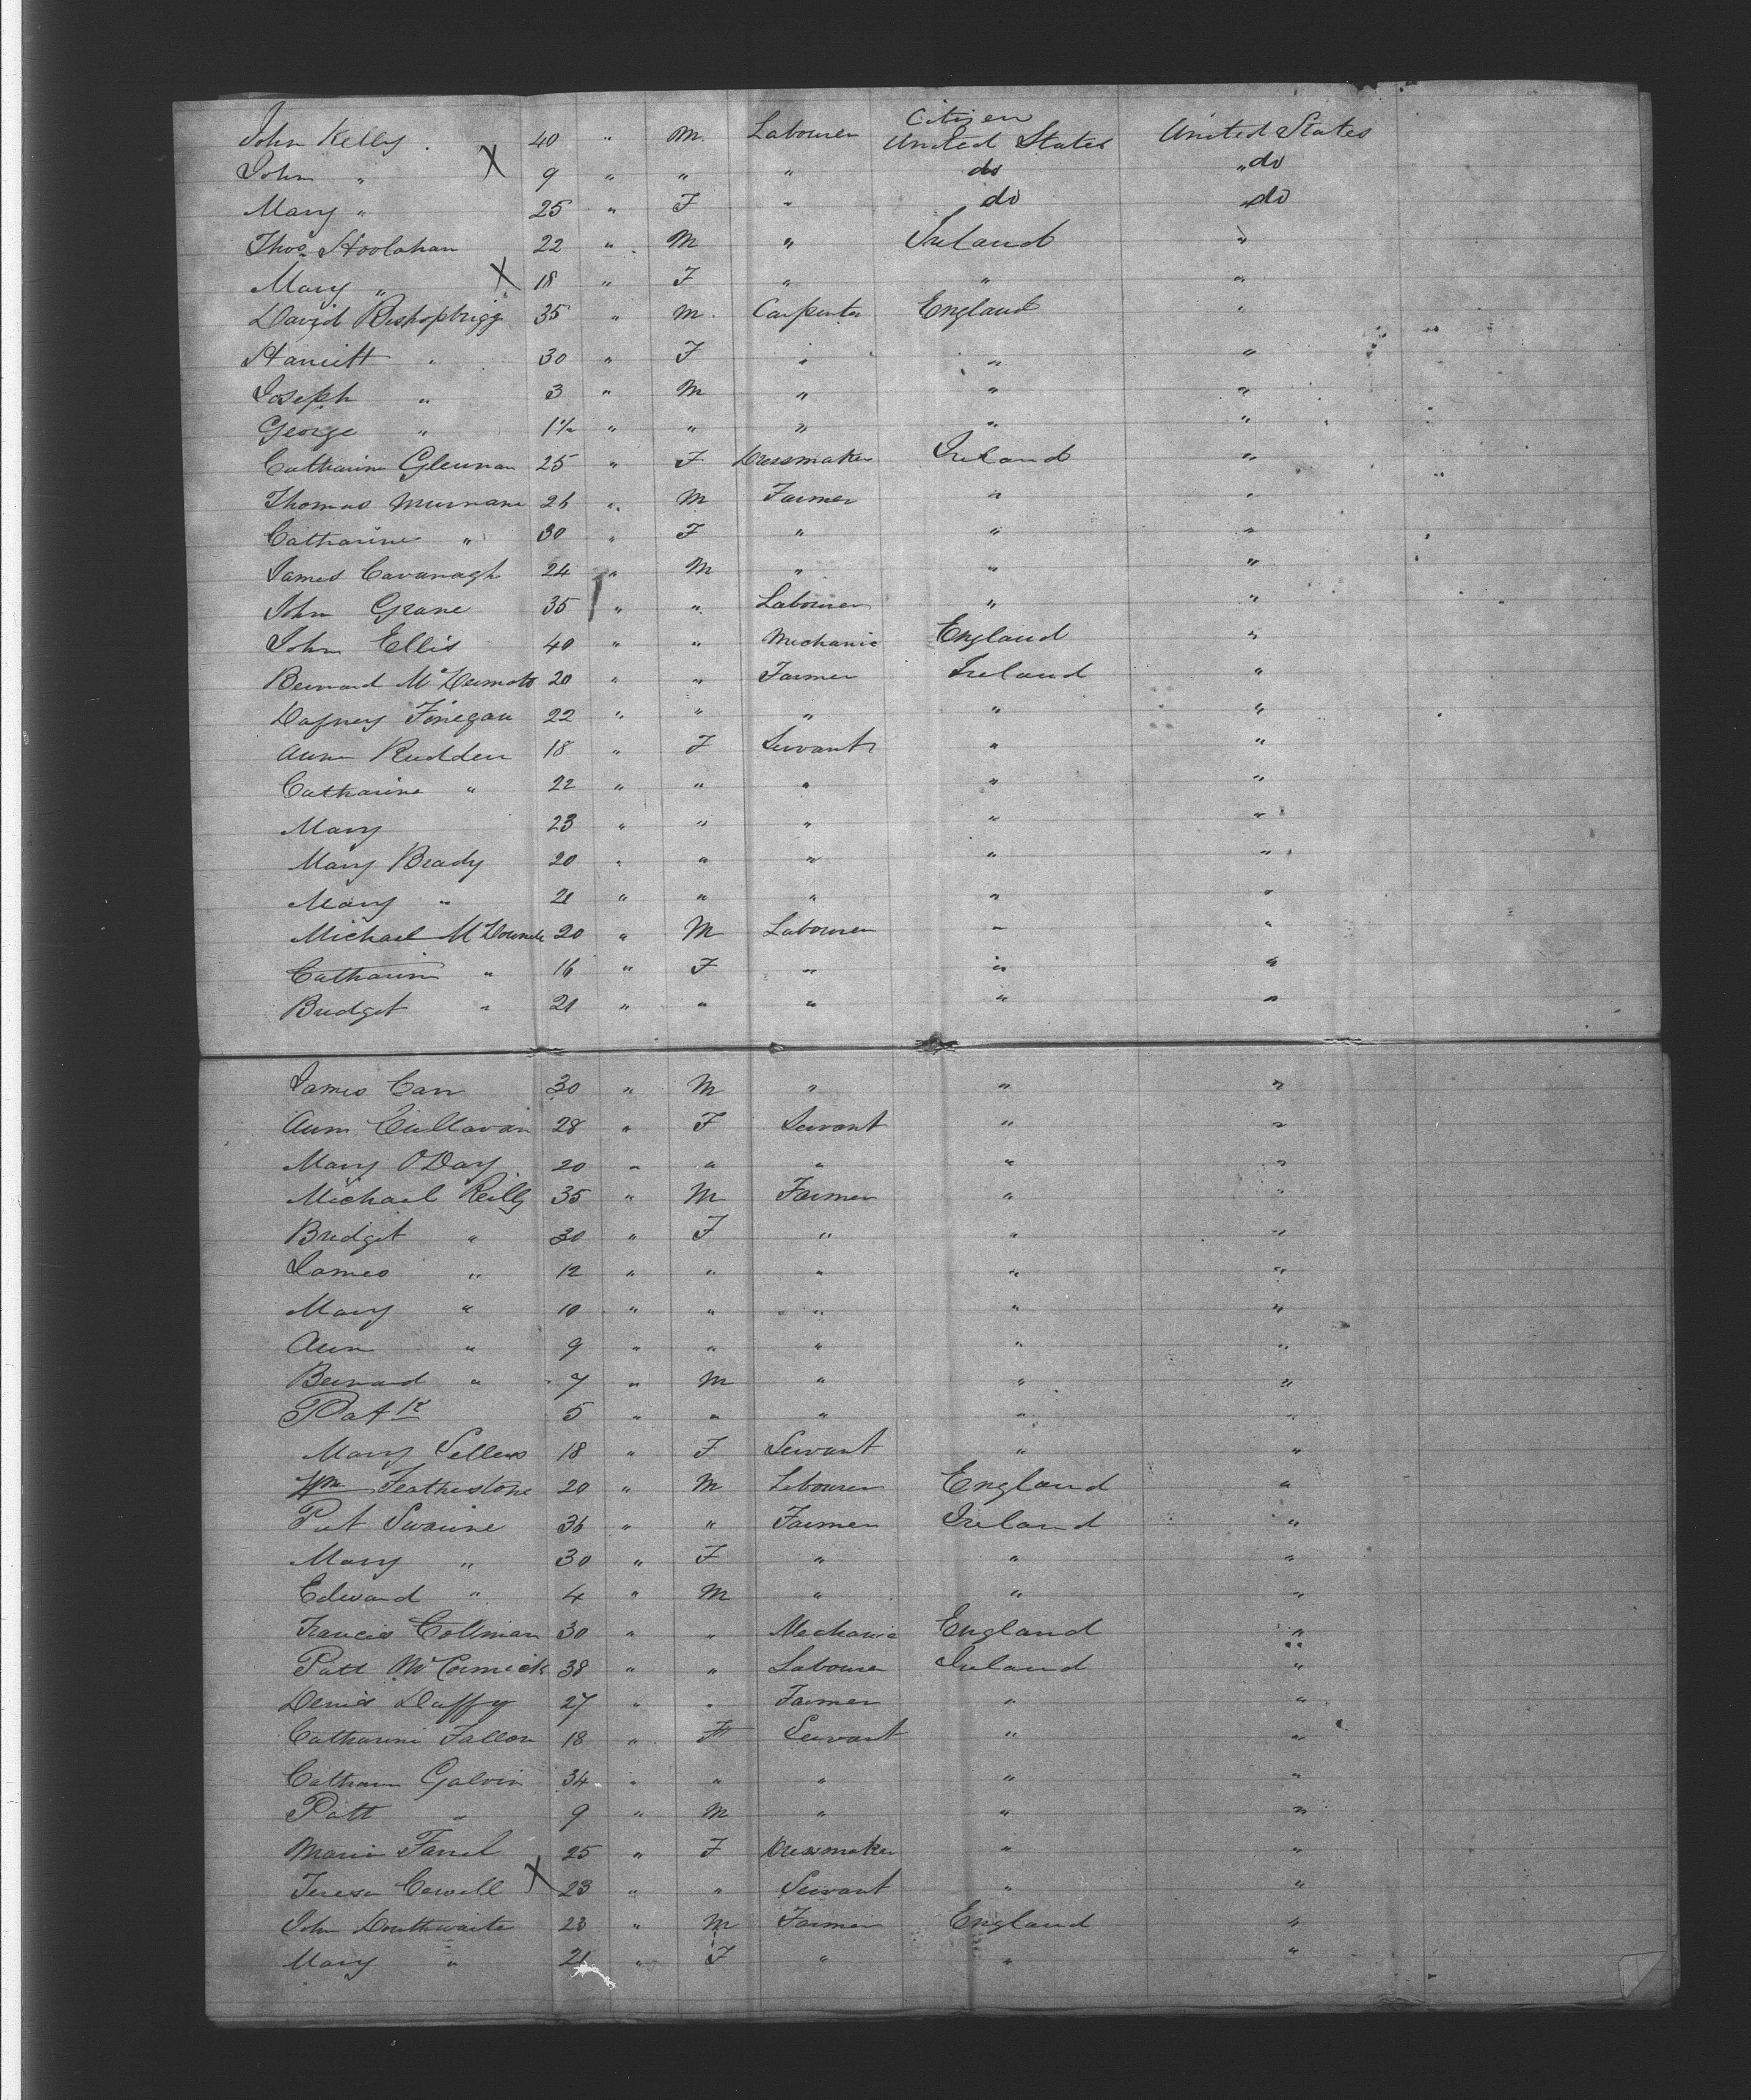 John Kelly . 40 " M. Labourer Citizen United States United States
John " X 9 " " " do " do
Mary " 25 " F " do " do
Thos Hoolahan 22 " M " Ireland "
Mary " X 18 " F " " "
David Bishopbrigg 35 " M. Carpenter England "
Harriett " 30 " F " " "
Joseph " 3 " M " " "
George " 1½ " " " " "
Catharine Glennan 25 " F Dressmaker Ireland "
Thomas Murnane 26 " M Farmer " "
Catharine " 30 " F " " "
James Cavanagh 24 " M " " "
John Grane 35 " " Labourer " "
John Ellis 40 " " Mechanic England "
Bernard McDermott 20 " " Farmer Ireland "
Dafney Finegan 22 " " " " "
Ann Rudden 18 " F Servants " "
Catharine " 22 " " " " "
Mary 23 " " " " "
Mary Brady 20 " " " " "
Mary " 21 " " " " "
Michael 20 " M Labourer " "
Catharine " 16 " F " " "
Bridget " 21 " " " " "
James Carr 30 " M " " "
Ann Cullavan 28 " F Servant " "
Mary O'Day 20 " " " " "
Michael Reilly 35 " M Farmer " "
Bridget " 30 " F " " "
James " 12 " " " " "
Mary " 10 " " " " "
Ann " 9 " " " " "
Bernard " 7 " M " " "
Patk 5 " " " " "
Mary Sellers 18 " F Servant " "
Wm Featherstone 20 " M Labourer England "
Pat Swaine 36 " " Farmer Ireland "
Mary " 30 " F " " "
Edward " 4 " M " " "
Francis Collman 30 " " Mechanic England "
Patt McCormick 38 " " Labourer Ireland "
Denis Duffy 27 " " Farmer " "
Catharine Fallon 18 " F Servant " "
Catharn Galvin 34 " " " " "
Patt " 9 " M " " "
Maria Farrel 25 " F Dressmaker " "
Teresa Carvell X 23 " " Servant " "
John Douthwaite 23 " M Farmer England "
Mary " 21 " F " " "